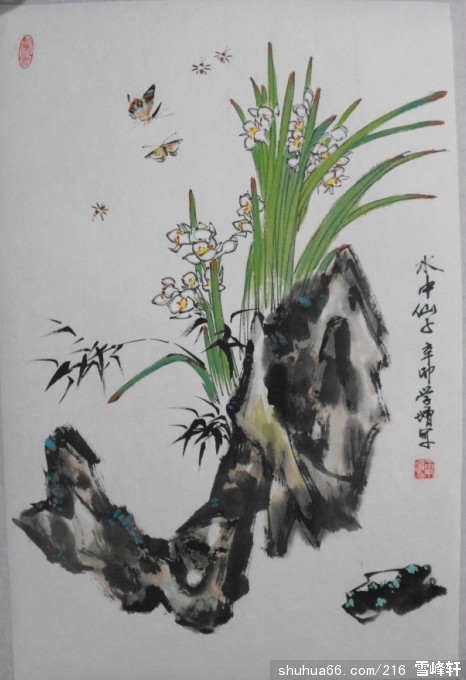 水中仙子 辛卯学靖写
shuhua66.com/216 雪峰轩